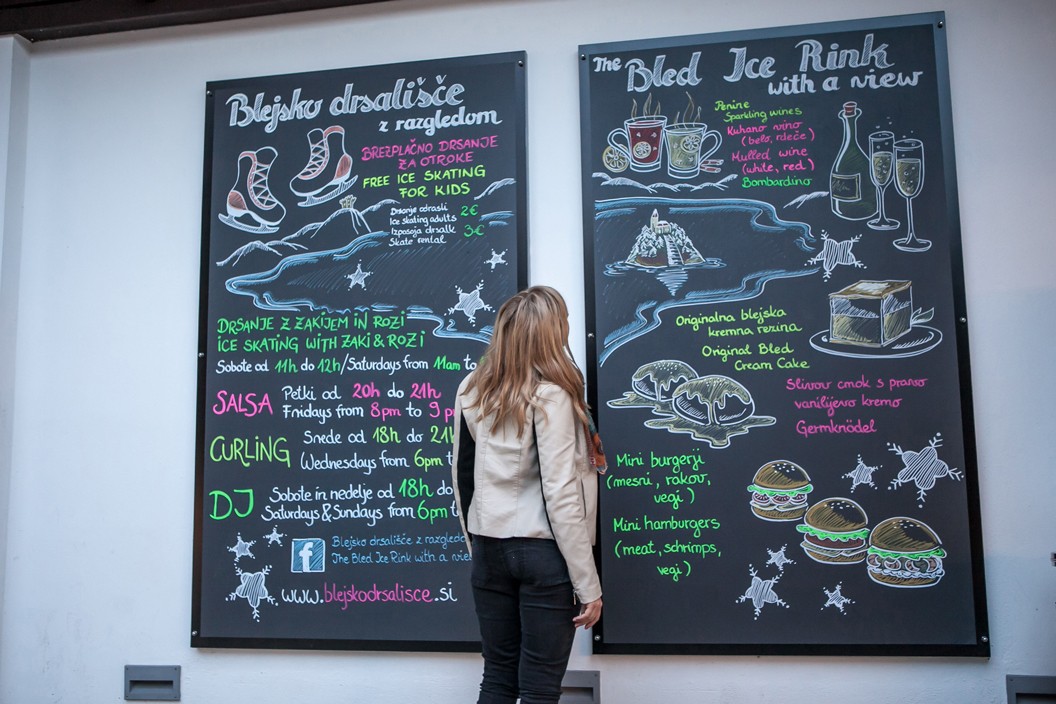 Blejsko drsališče
z razgledom
BREZPLAČNO DRSANJE
ZA OTROKE
FREE ICE SKATING
FOR KIDS
Drsanje odrasli
Ice skating adults 2€
Izposoja drsalk
Skate rental 3€
DRSANJE Z ZAKIJEM IN ROZI
ICE SKATING WITH ZAKI & ROZI
Sobote od 11h do 12h/Saturdays from 11am to
SALSA
Petki od 20h do 21h
Fridays from 8pm to 9 p
CURLING
Srede od 18h do 21h
Wednesdays from 6pm t
DJ
Sobote in nedelje od 18h do
Saturdays & Sundays from 6pm
f
Blejsko drsališče z razgledo
The Bled Ice Rink with a vie
www.blejskodrsalisce.si
The Bled Ice Rink
with a view
Penine
Sparkling wines
Kuhano vino
(belo, rdeče)
Mulled wine
(white, red)
Bombardino
Originalna blejska
kremna rezina
Original Bled
Cream Cake
Slivov cmok s pravo
vaniljevo kremo
Germknödel
Mini burgerji
(mesni, rakov,
vegi)
Mini hamburgers
(meat, schrimps,
vegi)